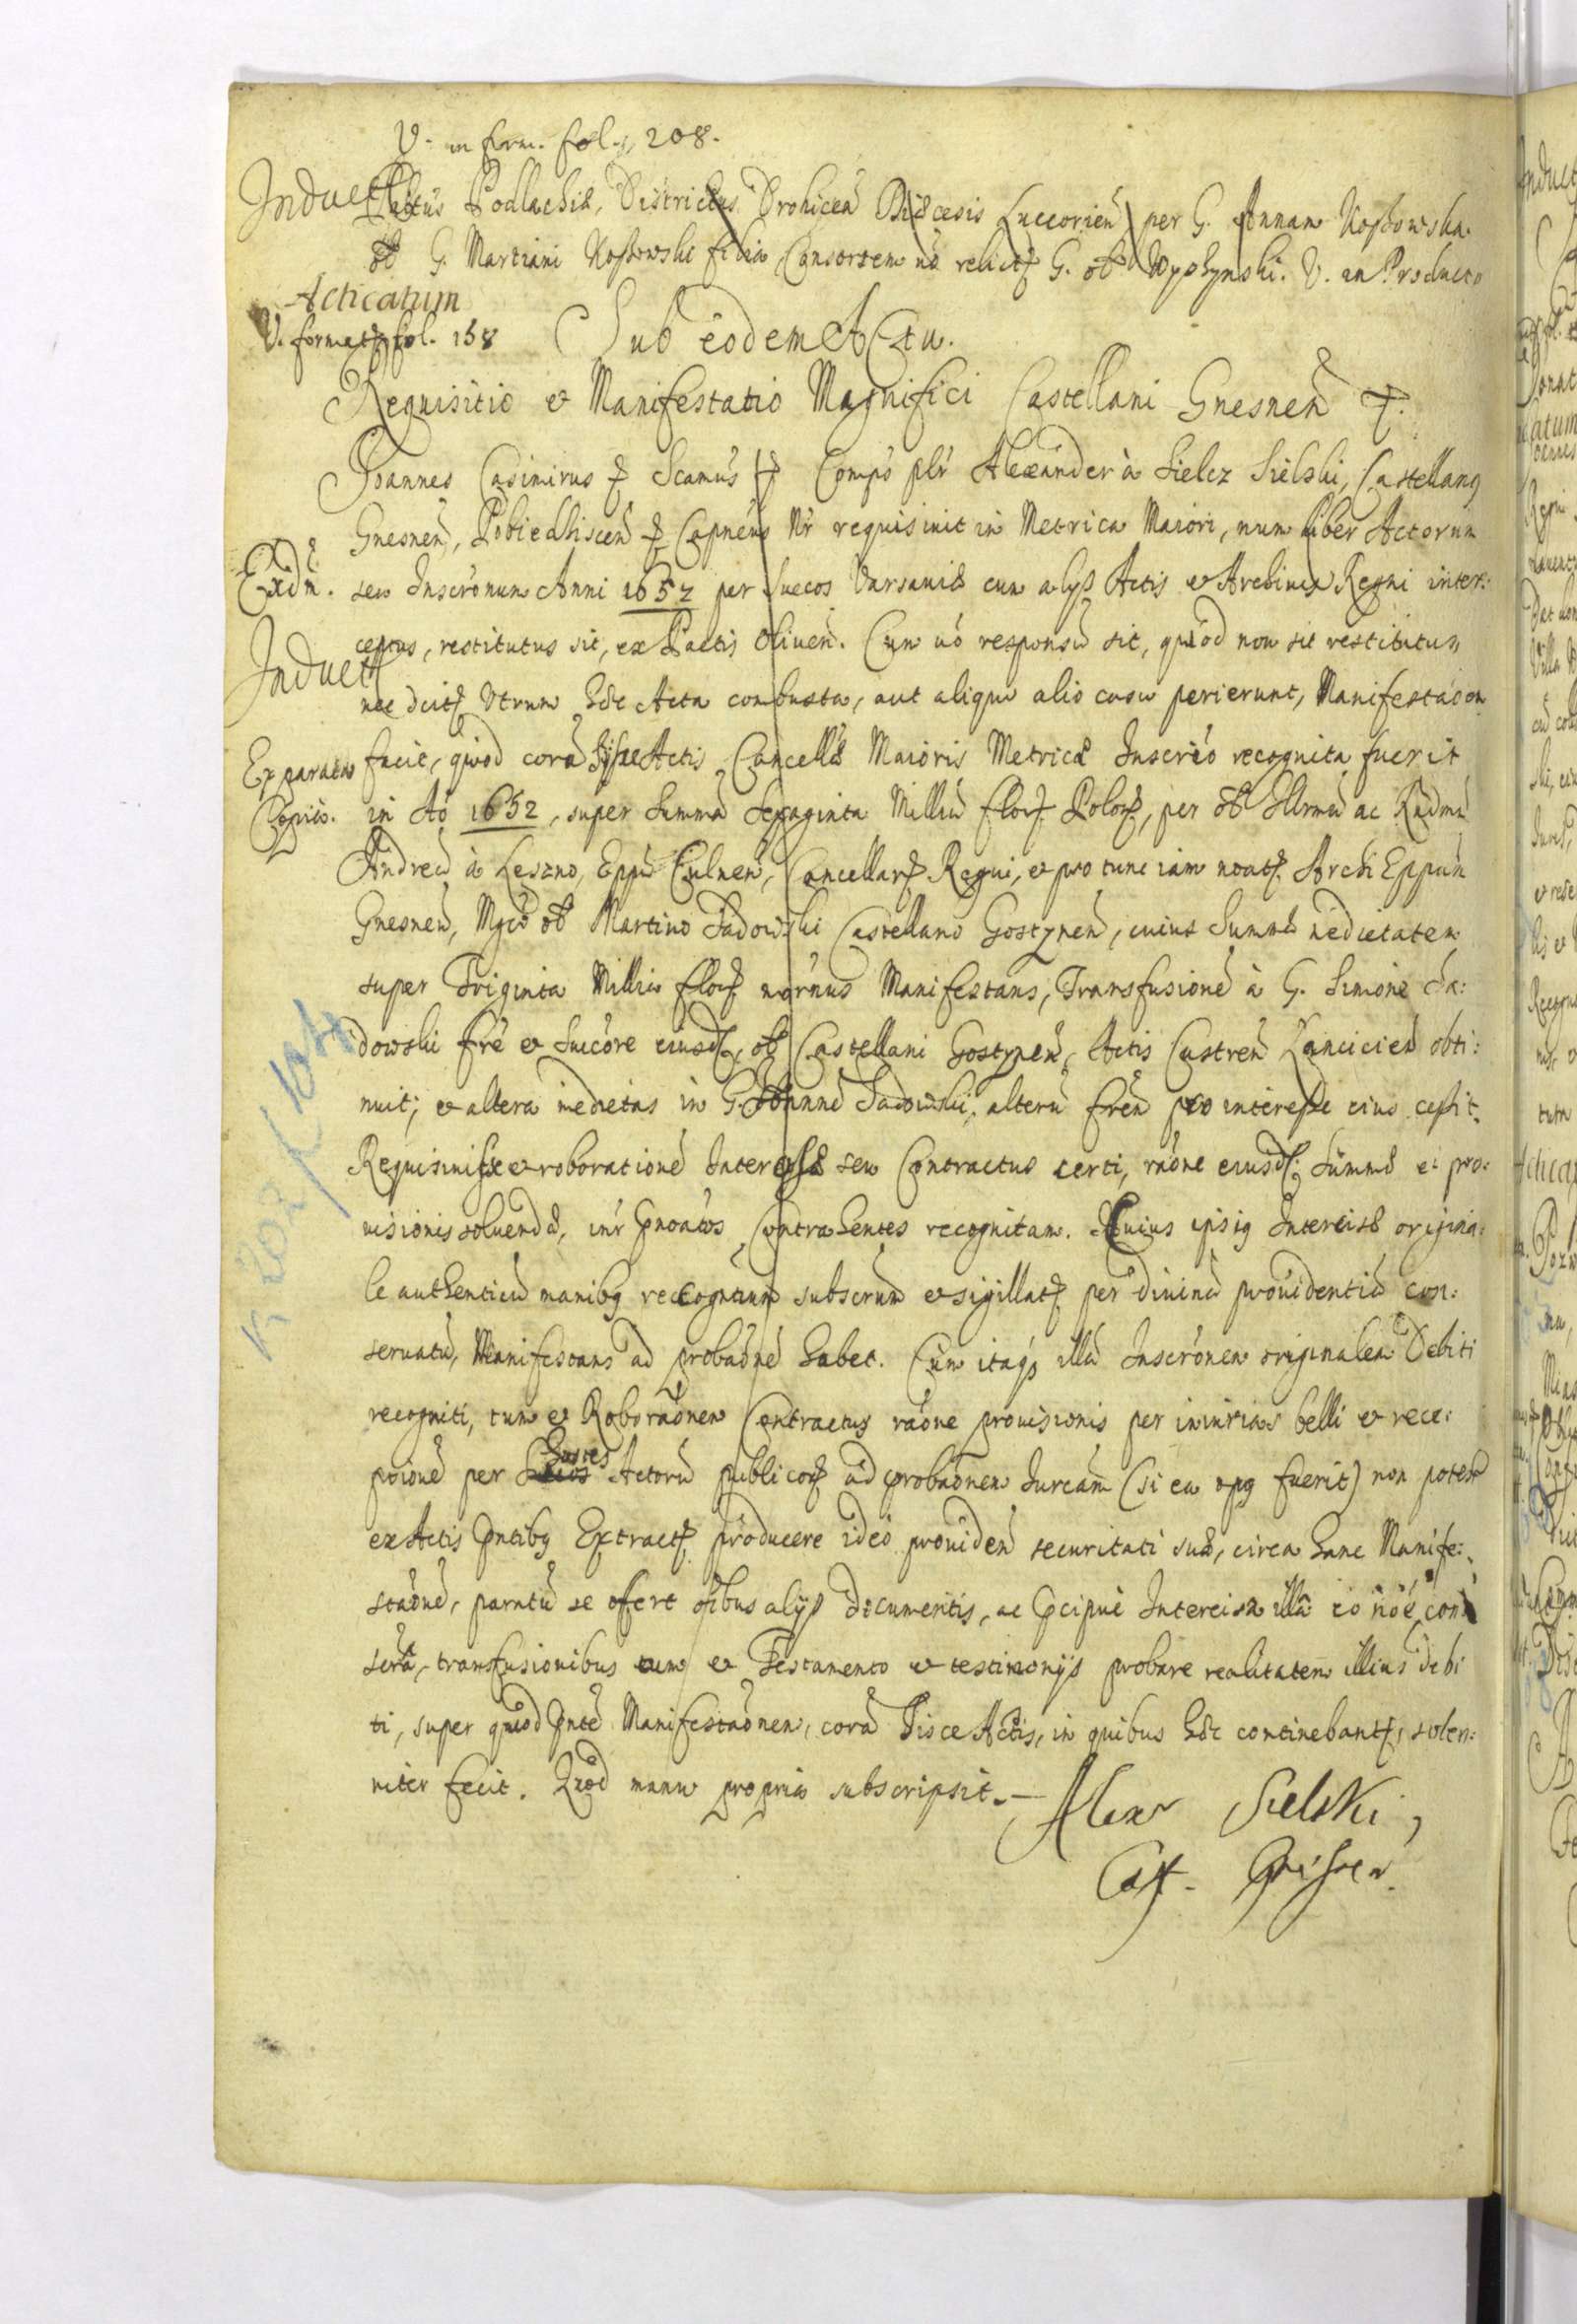 V. in form. fol. 208.
Induct. Pltûs Podlachiæ, Districtus Drohicen̄ Diæcesis Luceorien̄ per G. Annam Kossowska
ol. G. Martiani Kossowski filia, Consortem uò relict. G. ol. Wyssynski. V. in Producto
Acticatum
V. format. fol. 158 Sub eodem Actu.
Requisitio et Manifestatio Magnifici Castellani Gnesnen̄
Joannes Casimirus Scamûs Compŝ plr̂ Alexander à Sielcz Sielski, Castellanus
Gnesnen̄, Pobiedziscen̄ Capneûs Nr̂ requisiuit in Metrica Maiori, num Liber Actorum
Exidm. seu Inscrõnum Anni 1652 per Suecos Varsauiæ cum alijs Actis et Archiuis Regni inter:
ceptus, restitutus sit, ex Pactis Oliuen̄. Cum uò responsũ sit, quòd non sit restitutus,
Induct. nec dcit. Vtrum hæc Acta combusta, aut aliquo alio casu perierunt, Manifestãõem
Ex paratu fecit, quòd corã Actis Cancellæ Maioris Metricæ Inscrĩõ recognita fuerit
Copia. in Aõ 1652, super Summã Sexaginta Milliũ flor. Polon., per ol. Illrmũ ac Rndmũ
Andreã à Leszno, Eppũ Culnen̄, Cancellar. Regni, et pro tunc iam noat. Archi Eppum
Gnesnen̄, Mgcõ ol. Martino Sadowski Castellano Gostynen̄, cuius Summæ medietatem
super Triginta Milliũ flor. Manifestans, Transfusionẽ à G. Simone Sa:
dowski frẽ et Succõre eiusd., ol. Castellani Gostynen̄, Actis Castren̄ Lancicien̄ obti:
nuit; et altera medietas in G. Joannẽ Sadowski, alterũ frẽm pro interesse eius cessit.
Requisiuisse et roborationẽ Intercisæ seu Contractus certi, rãõne eiusd. Summæ et pro:
uisionis soluendæ, int̂r Contrahentes recognitam. Cuius ipsius Intercisæ origina:
le authenticũ manibus recogntium subscrũm et sigillat. per diuinã prouidentiã con:
seruatũ, Manifestans ad probãõnẽ habet. Cùm itaque illã Inscrõnem originalem Debiti
recogniti, tum et Roborãõnem Contractus rãõne prouisionis per iniurias belli et rece:
ptionẽ per hostes Actorũ publicor. ad probãõnem (si ea opus fuerit) non potest
ex Actis Extract. producere ideò prouiden̄ securitati suæ, circa hanc Manife:
stãõnẽ, paratũ se offert õibus alijs documentis, ac pcipuè Intercisa illã eõ nõĩe con
transfusionibus tum et Testamento et testimonijs probare realitatem illius debi
ti, super quod Manifestãõnem, corã hisce Actis, in quibus hæc continebant., solen:
niter fecit. Quod manu propria subscripsit.
Alexr Sielski,
Cast. Gnisnen.